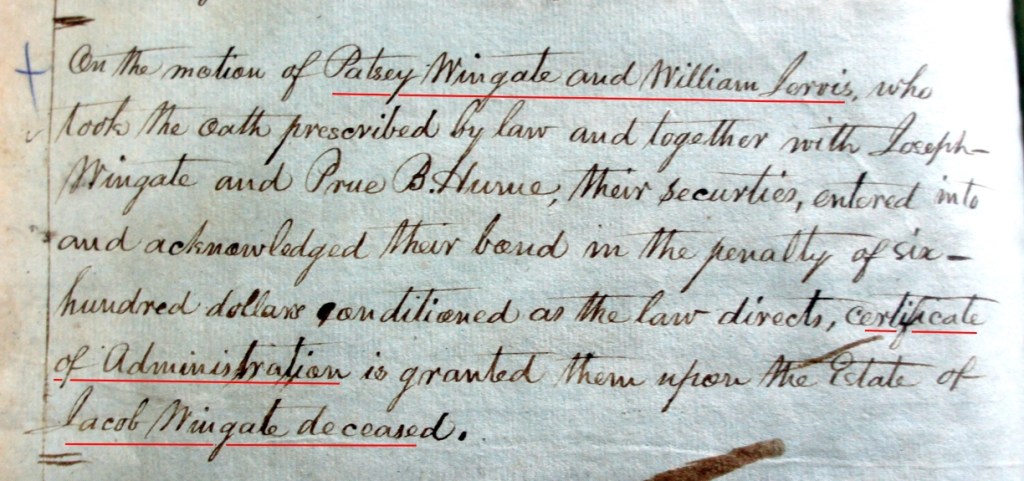 On the motion of Patsey Wingate and William Jervis, who
took the oath prescribed by law and together with Joseph
Wingate and Prue B. Hurue, their securties, entered into
and acknowledged their bond in the penalty of six-
hundred dollars conditioned as the law directs, certificate
of Administration is granted them upon the Estate of
Jacob Wingate deceased.